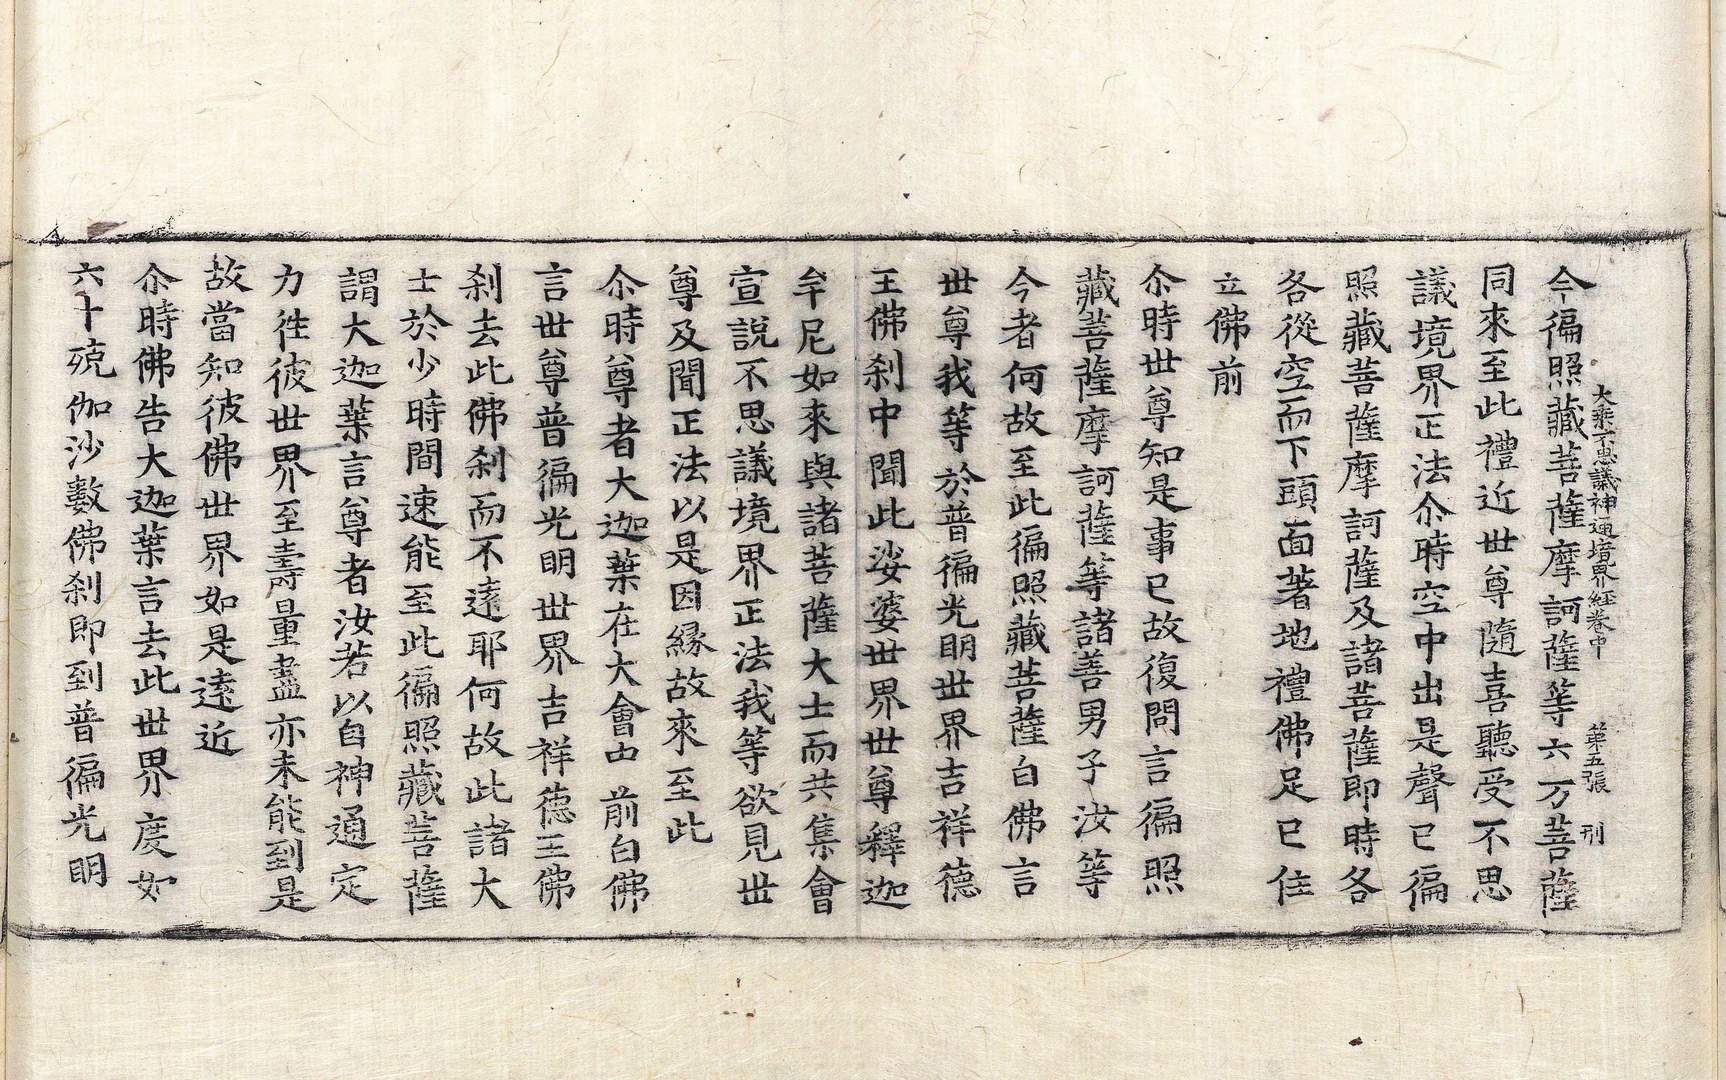 大乘不思議神通境界經卷中 第五張 刑
今徧照藏菩薩摩訶薩等六万菩薩
同來至此禮近世尊隨喜聽受不思
議境界正法尒時空中出是聲已徧
照藏菩薩摩訶薩及諸菩薩即時各
各從空而下頭面著地禮佛足已住
立佛前
尒時世尊知是事已故復問言徧照
藏菩薩摩訶薩等諸善男子汝等
今者何故至此徧照藏菩薩白佛言
世尊我等於普徧光明世界吉祥德
王佛刹中聞此娑婆世界世尊釋迦
牟尼如來與諸菩薩大士而共集會
宣說不思議境界正法我等欲見世
尊及聞正法以是因緣故來至此
尒時尊者大迦葉在大會由前白佛
言世尊普徧光明世界吉祥德王佛
刹去此佛刹而不遠耶何故此諸大
士於少時間速能至此徧照藏菩薩
謂大迦葉言尊者汝若以自神通定
力往彼世界至壽量盡亦未能到是
故當知彼佛世界如是遠近
尒時佛告大迦葉言去此世界度如
六十殑伽沙數佛刹即到普徧光明